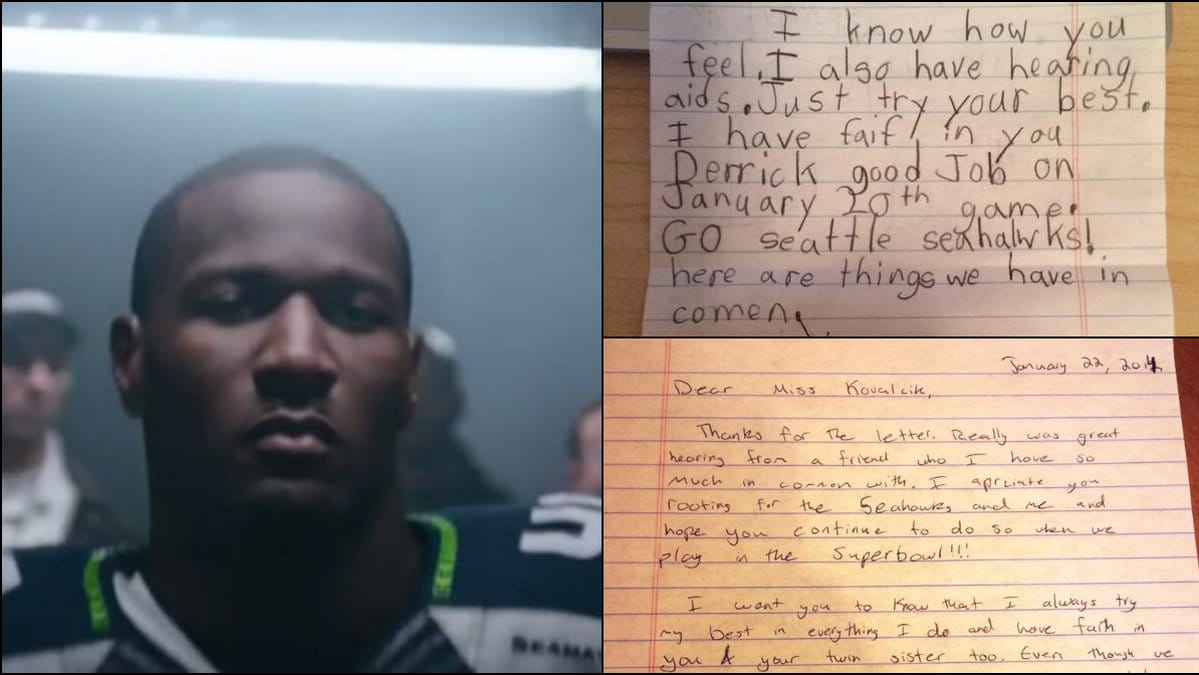 SEAHAW
I know how you
feel. I also have hearing
aids. Just try your best.
I have faif in you
Derrick good Job on
January 20th game.
GO seattle seahalwks!
here are things we have in
comen.
January 22, 2014
Dear Miss Kovalcik,
Thanks for the letter. Really was great
hearing from a friend who I have so
much in common with. I apreciate you
rooting for the Seahawks and me and
hope you continue to do so when we
play in the Superbowl!!!
I want you to know that I always try
my best in everything I do and have faith in
you & your twin sister too. Even though we